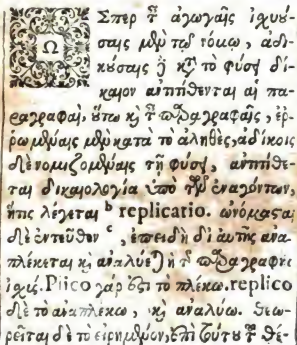 Ὥσπερ τ̃ ἀγωγαῖς ἰχυύ-
σαις μὲν τῷ τόμῳ, ἀδι-
κούσαις ἢ κτ̀ τὸ φύσι δί-
καιον ἀντιτίθενται αἱ πα-
ραγραφαὶ, οὕτω κὶ τ̃ παραγραφαῖς, ἐρ-
ρωμέναις μὲν κατὰ τὸ ἀληθὲς, ἀδίκοις
δὲ νομιζομέναις τῇ φύσι, ἀντιτίθε-
ται δικαιολογία ὑπὸ τῶν ἐναγόντων,
ἥτις λέγεται b replicario. ὠνόμασαι
δὲ ἐντεῦθεν c, ἐπειδὴ δι' αὐτῆς ἀνα-
πλέκεται κὶ ἀναλύε) ἡ τ̃ παραγραφῆς
ἰχίς. Plico γάρ ἐστι τὸ πλέκω. replico
δὲ τὸ ἀναπλέκω, κὶ ἀναλύω. θεω-
ρεῖται δὲ τὸ εἰρημένον, ἐπὶ τούτου τ̃ θέ-